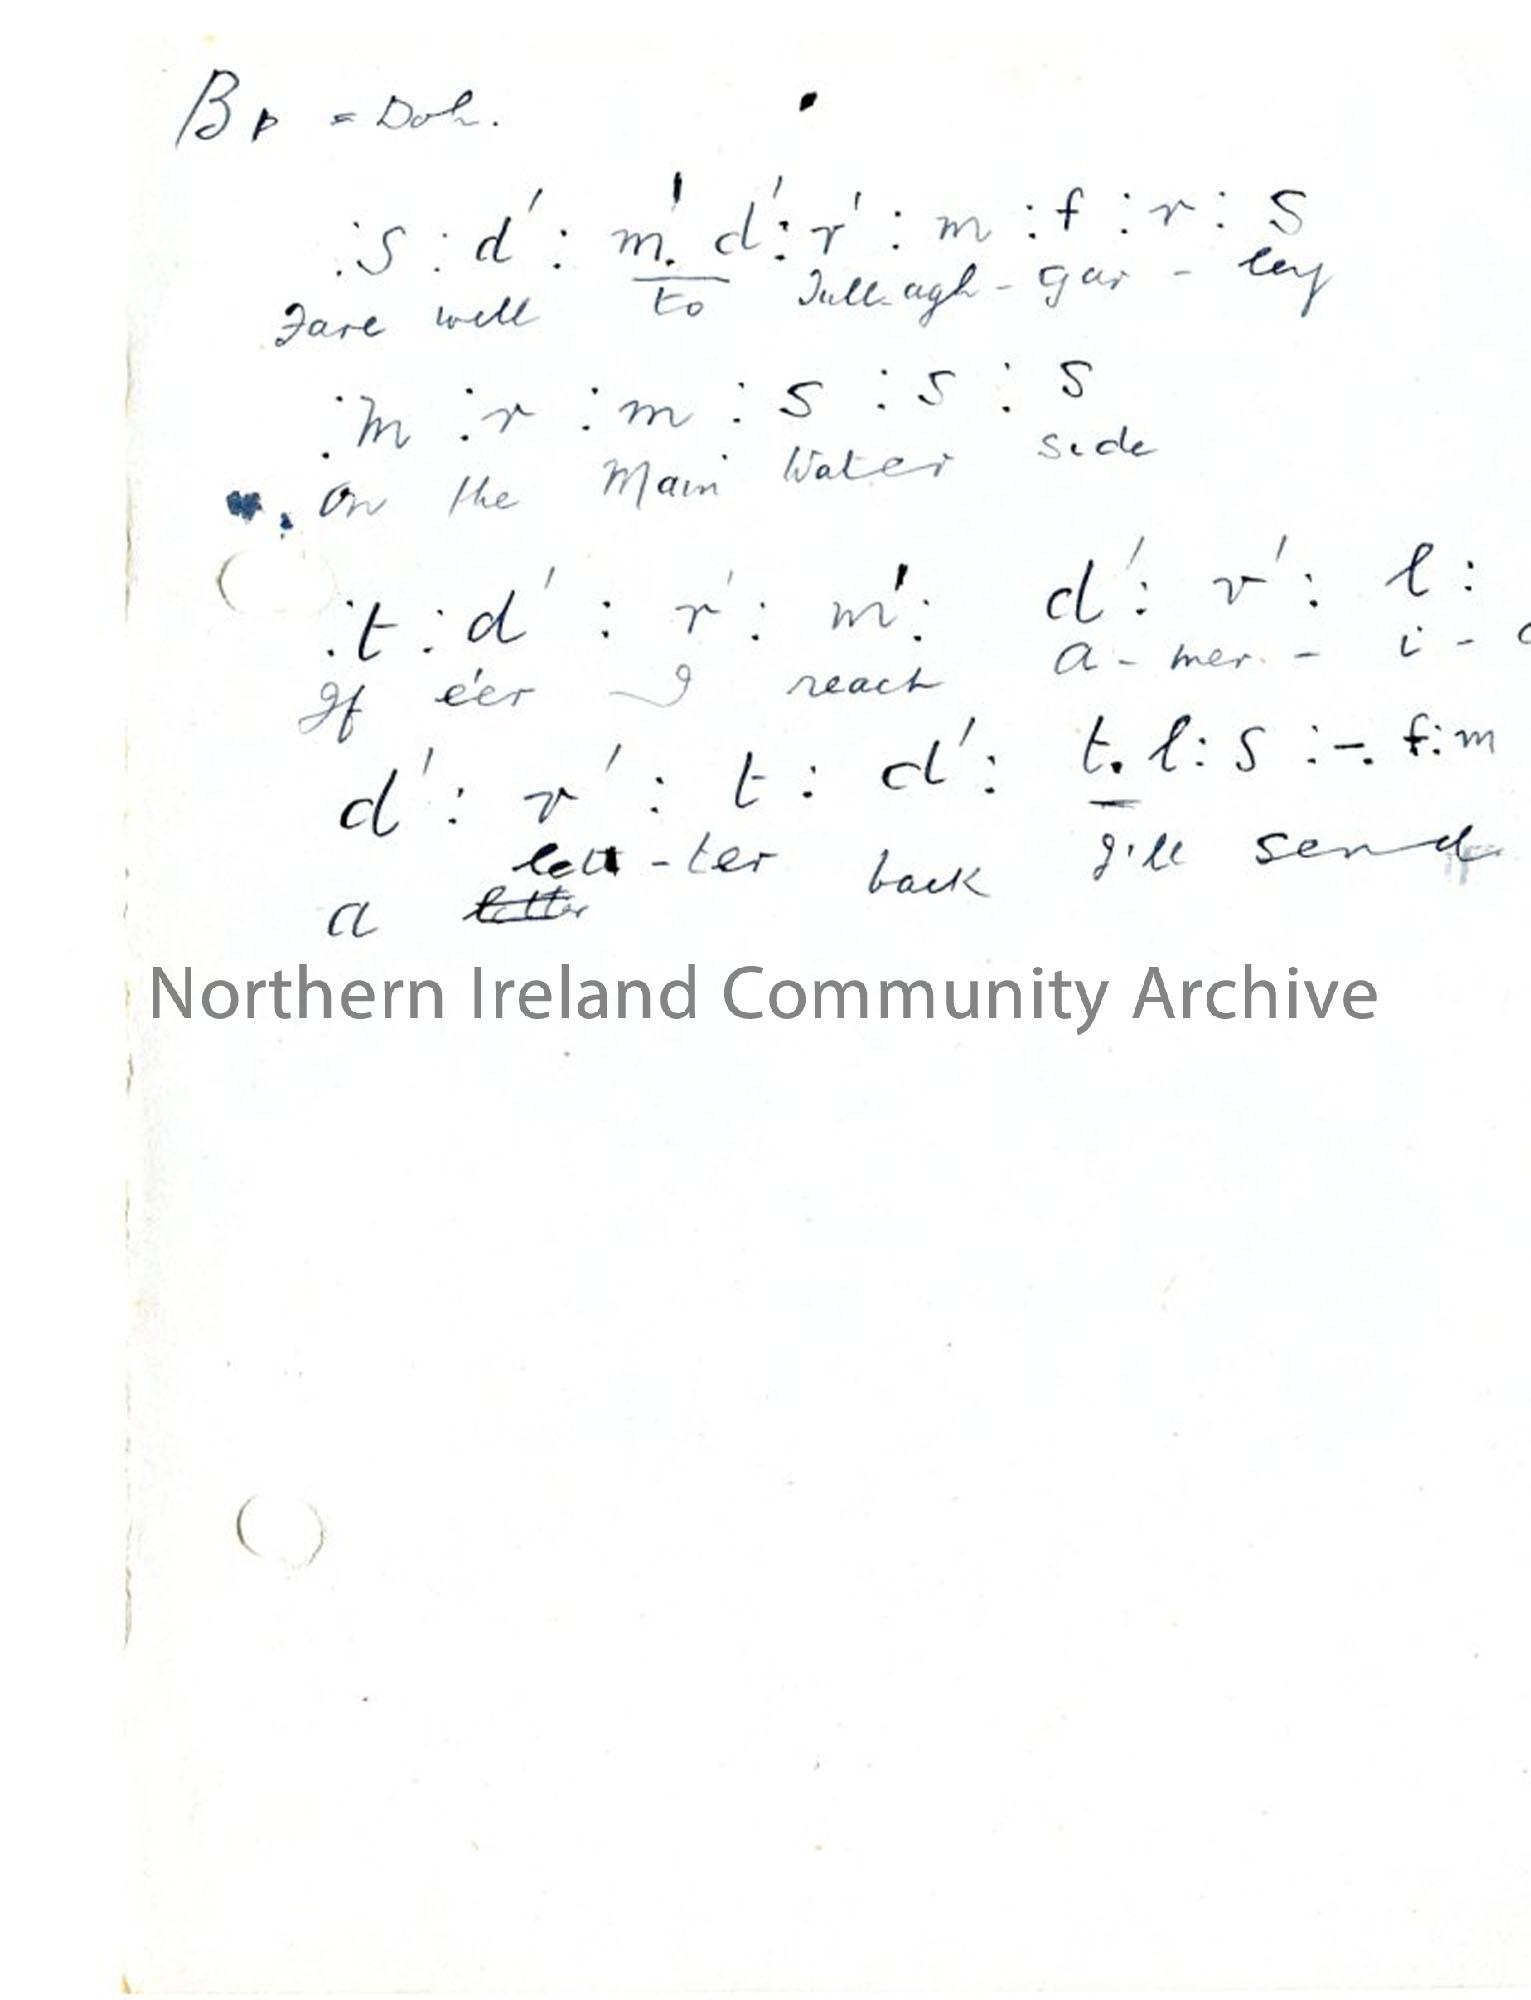 B♭ = Doh.
:s : d' : m'. d' : r' : m : f : r : s
Fare well to Tull-agh-gar-ley
:m : r : m : s : s : s
on the Main Water side
:t : d' : r' : m' : d' : r' : l :
If e'er I reach A-mer-i-
d' : r' : t : d' : t. l : s : -. f : m
lett-ter
a letter back I'll send
Northern Ireland Community Archive